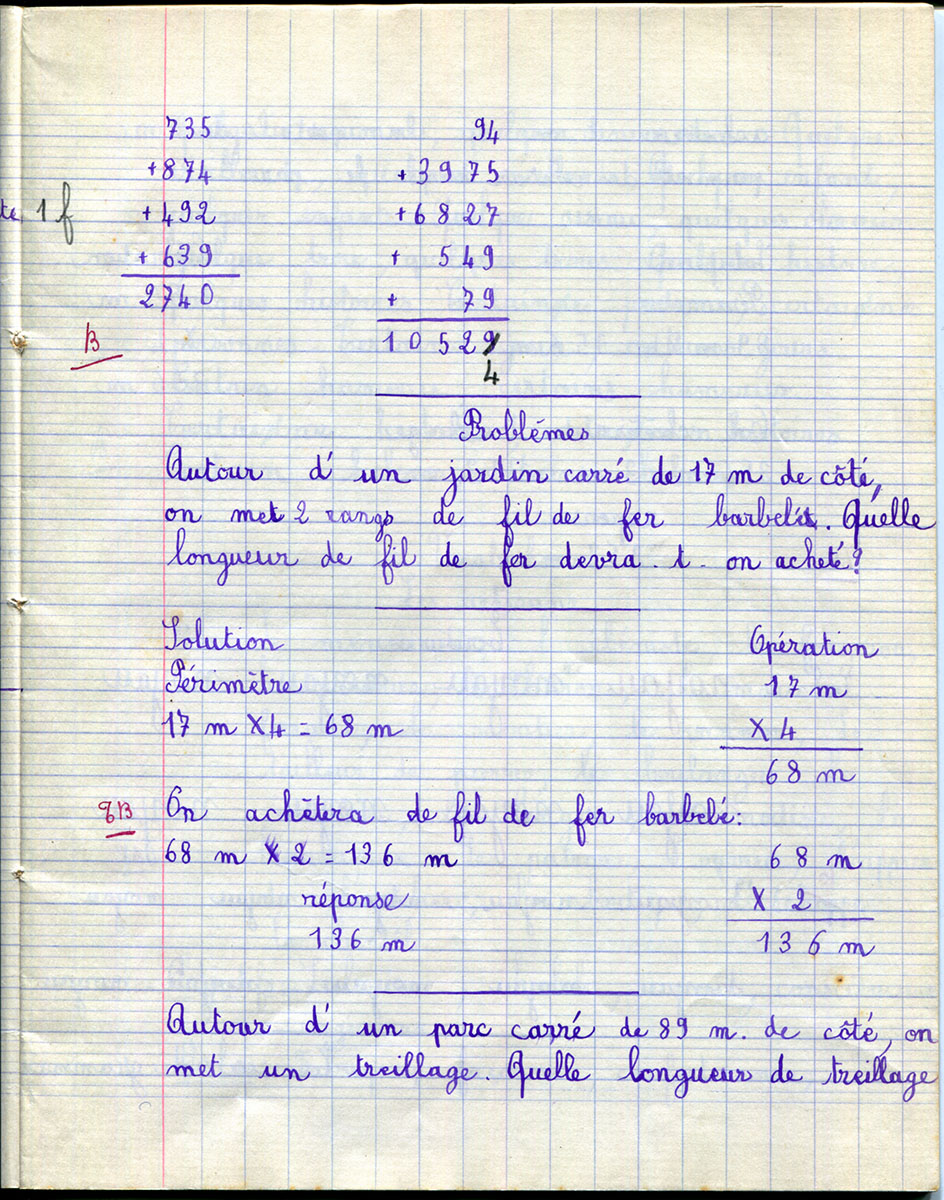 735
+874
+492
+639
2740
te 1 f
B
94
+3975
+6827
+ 549
+ 79
10529
4
Problémes
Autour d'un jardin carré de 17 m de côté,
on met 2 rangs de fil de fer barbelés. Quelle
longueur de fil de fer devra-t-on acheté?
Solution
Opération
Périmètre
17 m
17 m X 4 = 68 m
X 4
68 m
On achètera de fil de fer barbebé:
68 m X 2 = 136 m
68 m
réponse
X 2
136 m
136 m
Autour d'un parc carré de 89 m. de côté, on
met un treillage. Quelle longueur de treillage